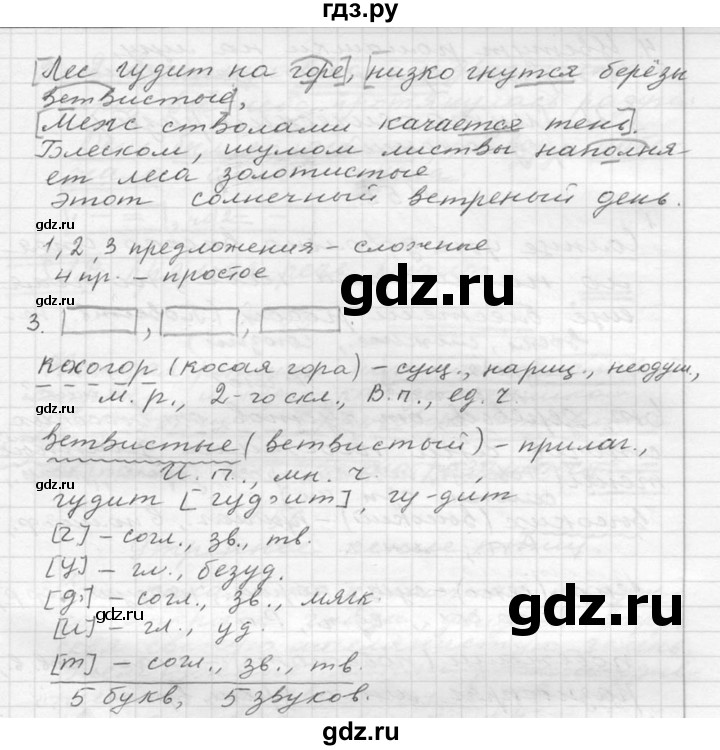 гдз.ру
[Лес гудит на горе], [низко гнутся берёзы
ветвистые],
[Меж стволами качается тень].
Блеском, шумом листвы наполня-
ет леса золотистые
gdz.ru
этот солнечный ветреный день.
gdz.ru
1, 2, 3 предложения – сложные
4 пр. – простое
gdz.ru
gdz.ru
3. [ ], [ ], [ ].
gdz.ru
косогор (косая гора) – сущ., нариц., неодуш,
м. р., 2-го скл., В. п., ед. ч.
gdz.ru
ветвистые (ветвистый) – прилаг.,
И. п., мн. ч.
gdz.ru
гудит [гуд'ит], гу-дит
[г] – согл., зв., тв.
gdz.ru
[у] – гл., безуд.
[д'] – согл., зв., мягк.
gdz.ru
[и] – гл., уд.
[т] – согл., зв., тв.
gdz.ru
5 букв, 5 звуков.
gdz.ru
gdz.ru